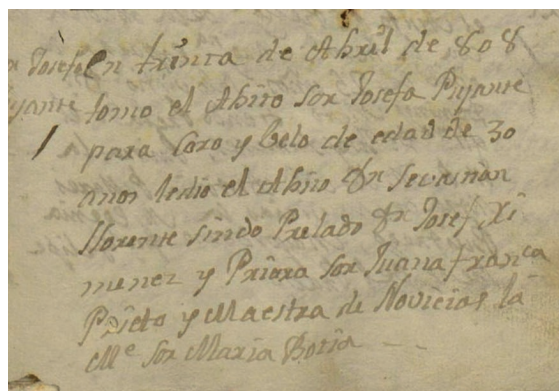 r Josefa
yante
En trinta de Abril de 808
tomo el Abito sor Josefa Piyante
para Coro y belo de edad de 30
anos ledio el Abito Dn Sevasnan
Llorente sindo Prelado Dn Josef Xi
menez y Priora sor Juana franca
Prieto y Maestra de Novicias la
Me Sor Maria Boria